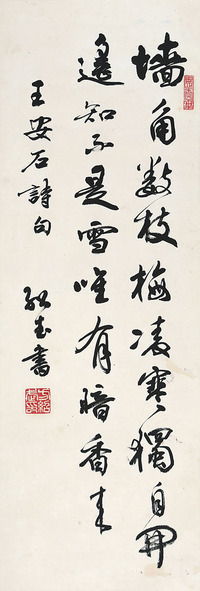 墙角数枝梅凌寒独自开
遥知不是雪唯有暗香来
王安石詩句
书